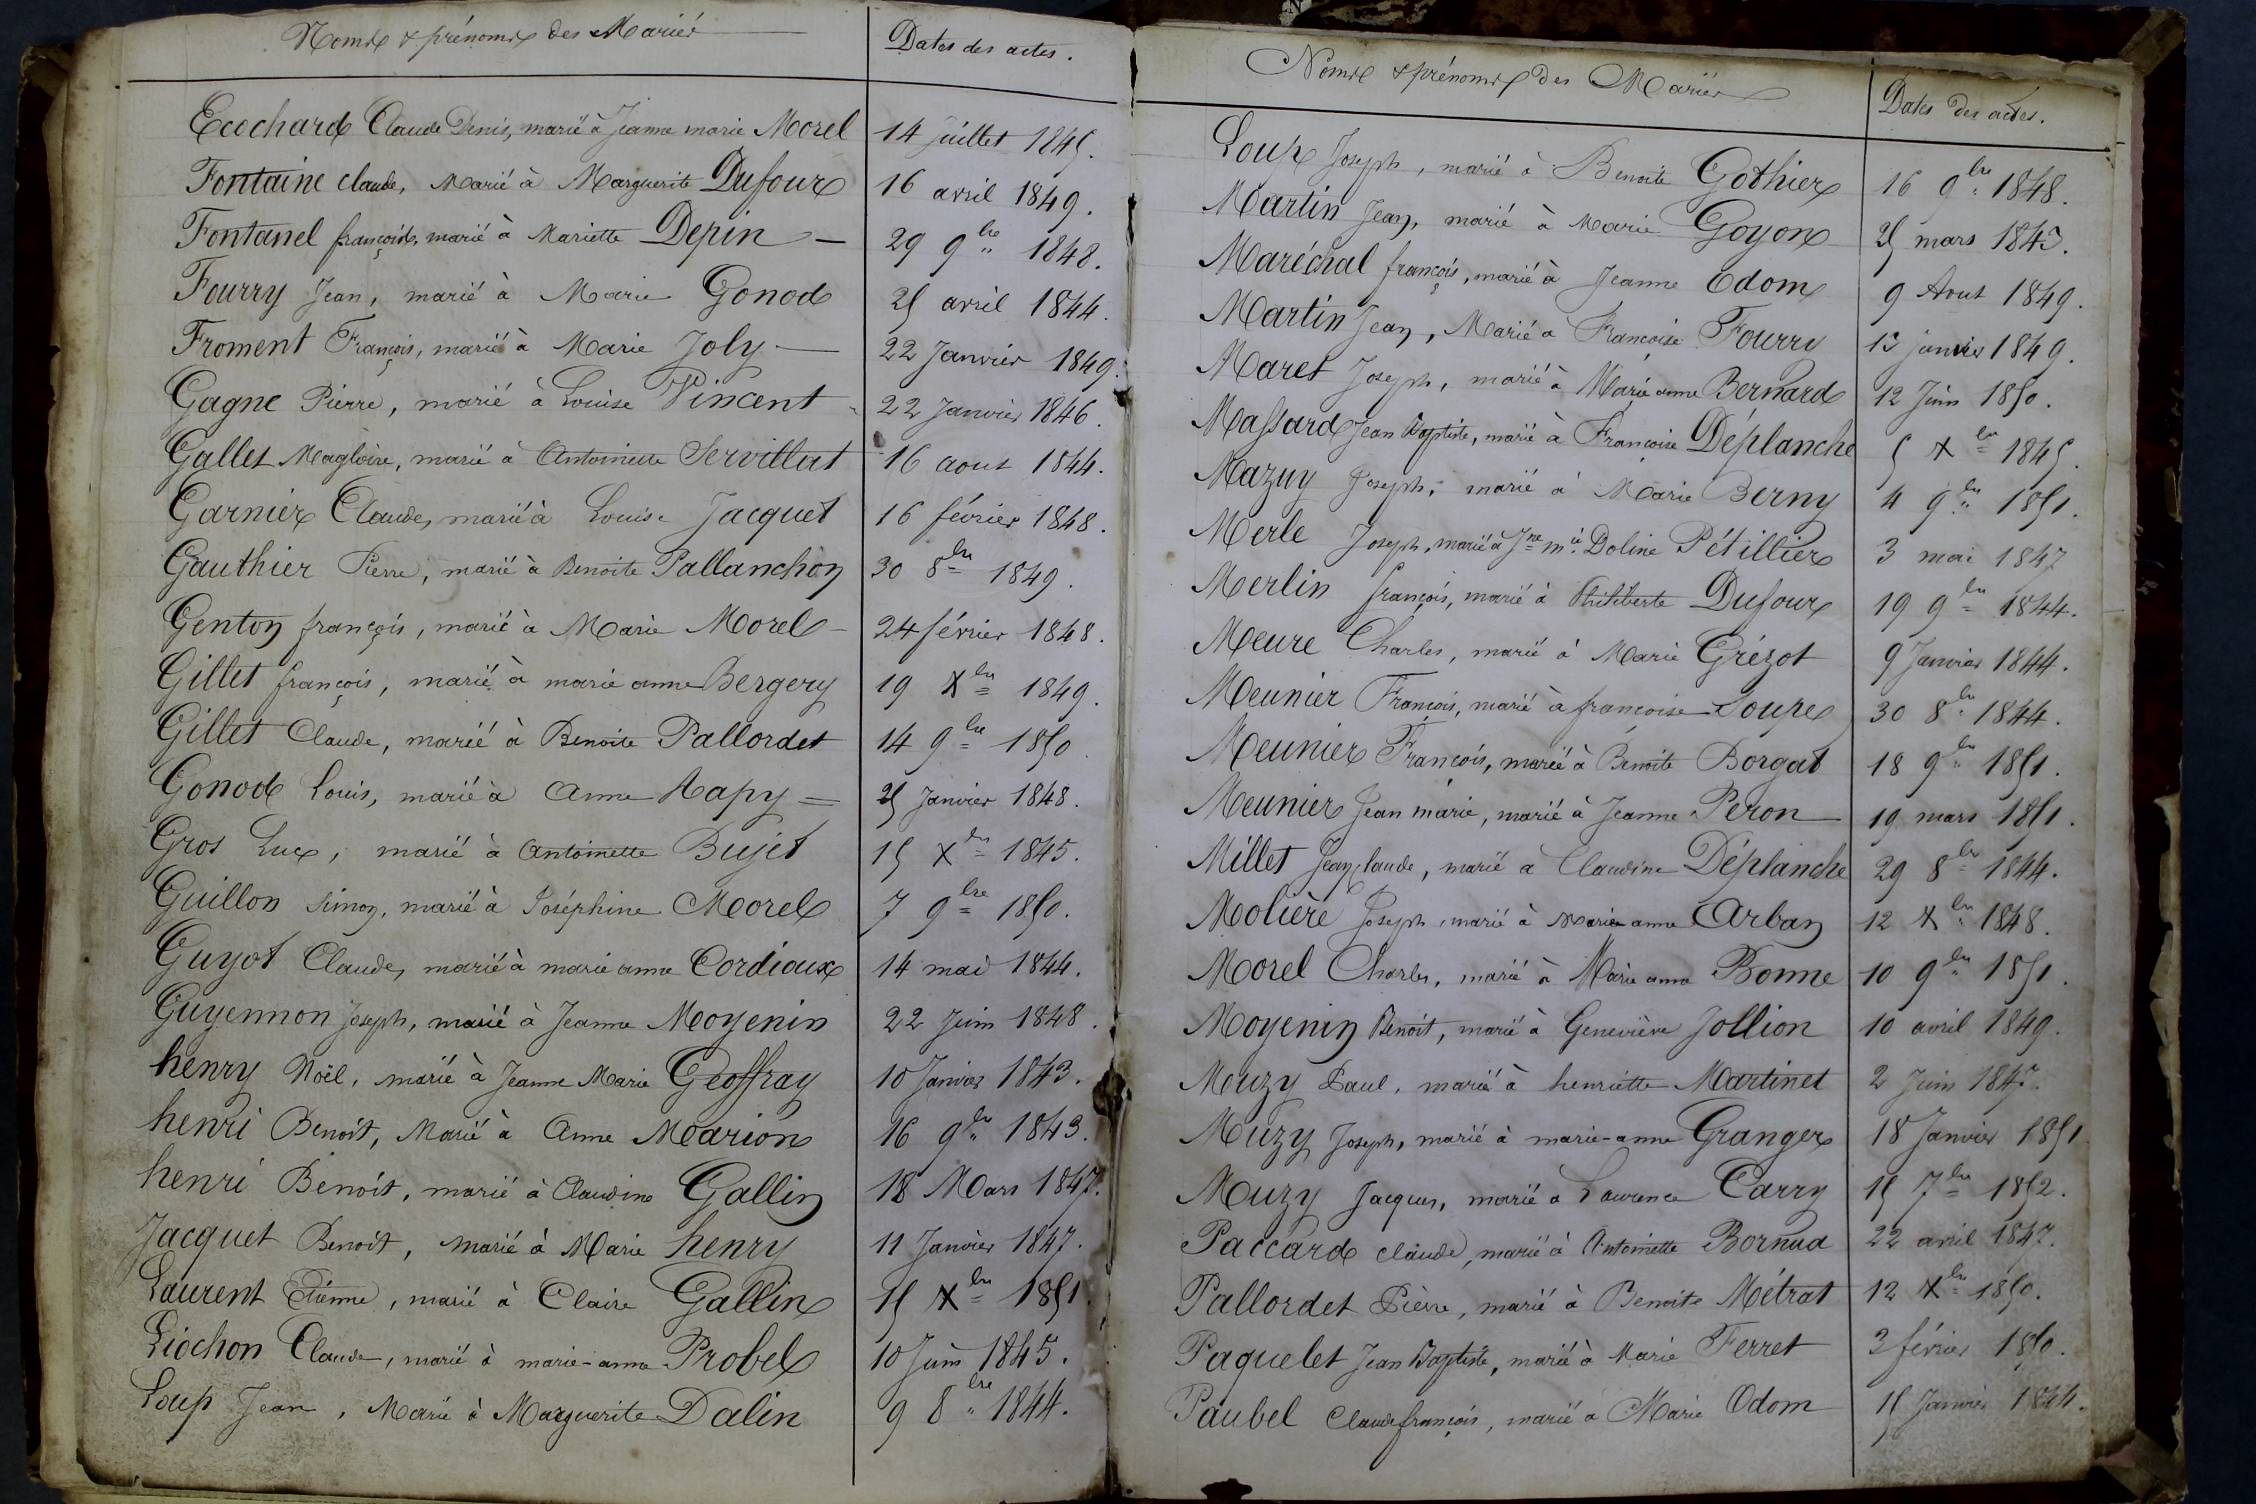 Noms & prénoms des Mariés
Dates des actes.
Ecochard Claude Denis, marié à Jeanne marie Morel 14 juillet 1845.
Fontaine Claude, Marié à Marguerite Dufour 16 avril 1849.
Fontanel françois, marié à Mariette Depin — 29 9bre 1848.
Fourry Jean, marié à Marie Gonod 25 avril 1844.
Froment François, marié à Marie Joly — 22 Janvier 1849.
Gagne Pierre, marié à Louise Vincent 22 Janvier 1846.
Gallet Magloire, marié à Antoinette Servillat 16 aout 1844.
Garnier Claude, marié à Louise Jacquet 16 février 1848.
Gauthier Pierre, marié à Benoite Pallanchon 30 8bre 1849.
Genton françois, marié à Marie Morel — 24 février 1848.
Gillet françois, marié à marie anne Bergery 19 Xbre 1849.
Gillet Claude, marié à Benoite Pallordet 14 9bre 1850
Gonod Louis, marié à Anne Rapy = 25 Janvier 1848.
Gros Luc, marié à Antoinette Bujet 15 Xbre 1845.
Guillon Simon, marié à Joséphine Morel 7 9bre 1850.
Guyot Claude, marié à marie anne Cordioux 14 mai 1844.
Guyennon Joseph, marié à Jeanne Moyenin 22 Juin 1848.
henry Noël, marié à Jeanne Marie Geoffray 10 Janvier 1843.
henri Benoît, Marié à Anne Marion 16 9bre 1843.
henri Benoît, marié à Claudine Gallin 18 Mars 1847.
Jacquet Benoît, marié à Marie henry 11 Janvier 1847.
Laurent Etienne, marié à Claire Gallin 15 Xbre 1851
Liochon Claude, marié à marie-anne Probel 10 Juin 1845.
Loup Jean, Marié à Marguerite Dalin 9 8bre 1844.
Noms & prénoms des Mariés
Dates des actes.
Loup Joseph, marié à Benoite Gothier 16 9bre 1848.
Martin Jean, marié à Marie Goyon 25 mars 1845.
Maréchal françois, marié à Jeanne Odom 9 Aout 1849.
Martin Jean, Marié à Françoise Fourry 13 janvier 1849.
Maret Joseph, marié à Marie anne Bernard 12 Juin 1850.
Massard Jean Baptiste, marié à Françoise Déplanche 5 Xbre 1845.
Mazuy Joseph, marié à Marie Berny 4 9bre 1851.
Merle Joseph, marié à Jne mie Doline Pétillier 3 mai 1847
Merlin françois, marié à Philiberte Dufour 19 9bre 1844.
Meure Charles, marié à Marie Grézot 9 Janvier 1844.
Meunier François, marié à françoise Soupe 30 8bre 1844.
Meunier François, marié à Benoite Borgat 18 9bre 1851.
Meunier Jean marie, marié à Jeanne Peron 19 mars 1851.
Millet Jean claude, marié à Claudine Déplanche 29 8bre 1844.
Molière Joseph, marié à Marie anne Arban 12 Xbre 1848.
Morel Charles, marié à Marie anne Bonne 10 9bre 1851.
Moyenin Benoît, marié à Geneviève Jollion 10 avril 1849.
Muzy Paul, marié à henriette Martinet 2 Juin 1847.
Muzy Joseph, marié à marie-anne Granger 18 Janvier 1851
Muzy Jacques, marié à Laurence Carry 15 7bre 1852.
Paccard claude, marié à Antoinette Bornua 22 avril 1847.
Pallordet Pierre, marié à Benoite Métrat 12 Xbre 1850.
Paquelet Jean Baptiste, marié à Marie Ferret 2 février 1850.
Paubel Claude françois, marié à Marie Odom 15 Janvier 1844.